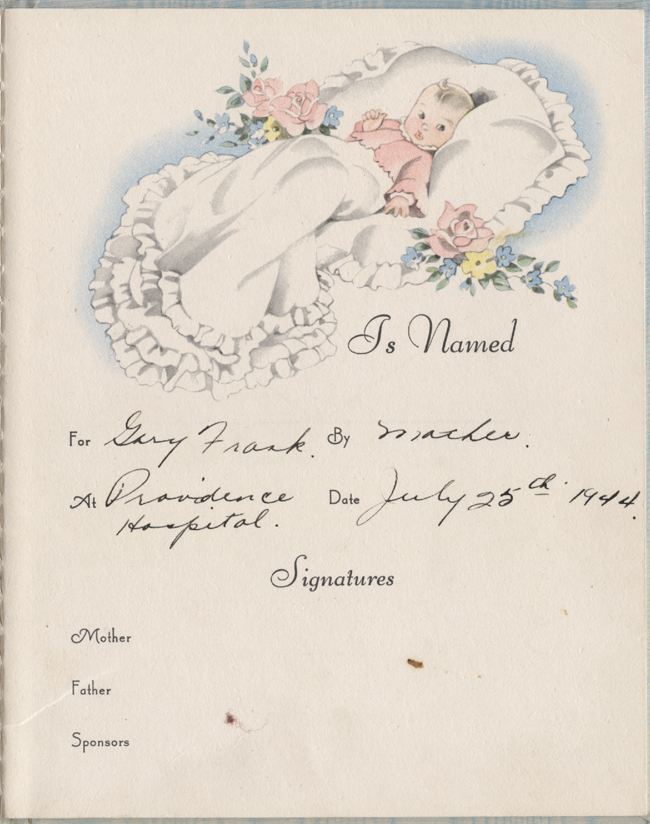 Is Named
For Gary Frank. By Mother.
At Providence Date July 25th. 1944.
Hospital.
Signatures
Mother
Father
Sponsors